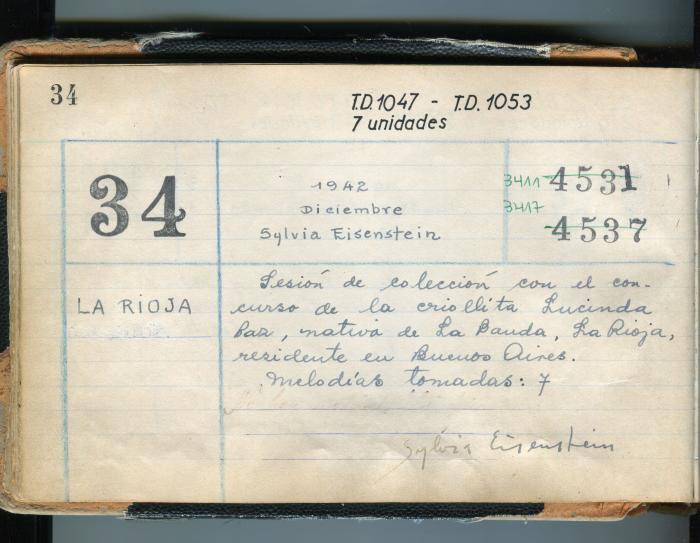 34
T.D.1047 - T.D.1053
7 unidades
34
1942
Diciembre
Sylvia Eisenstein
3411 4531
3417 4537
LA RIOJA
Sesión de colección con el con-
curso de la criollita Lucinda
Paz, nativa de La Banda, La Rioja,
residente en Buenos Aires.
Melodías tomadas: 7
Sylvia Eisenstein